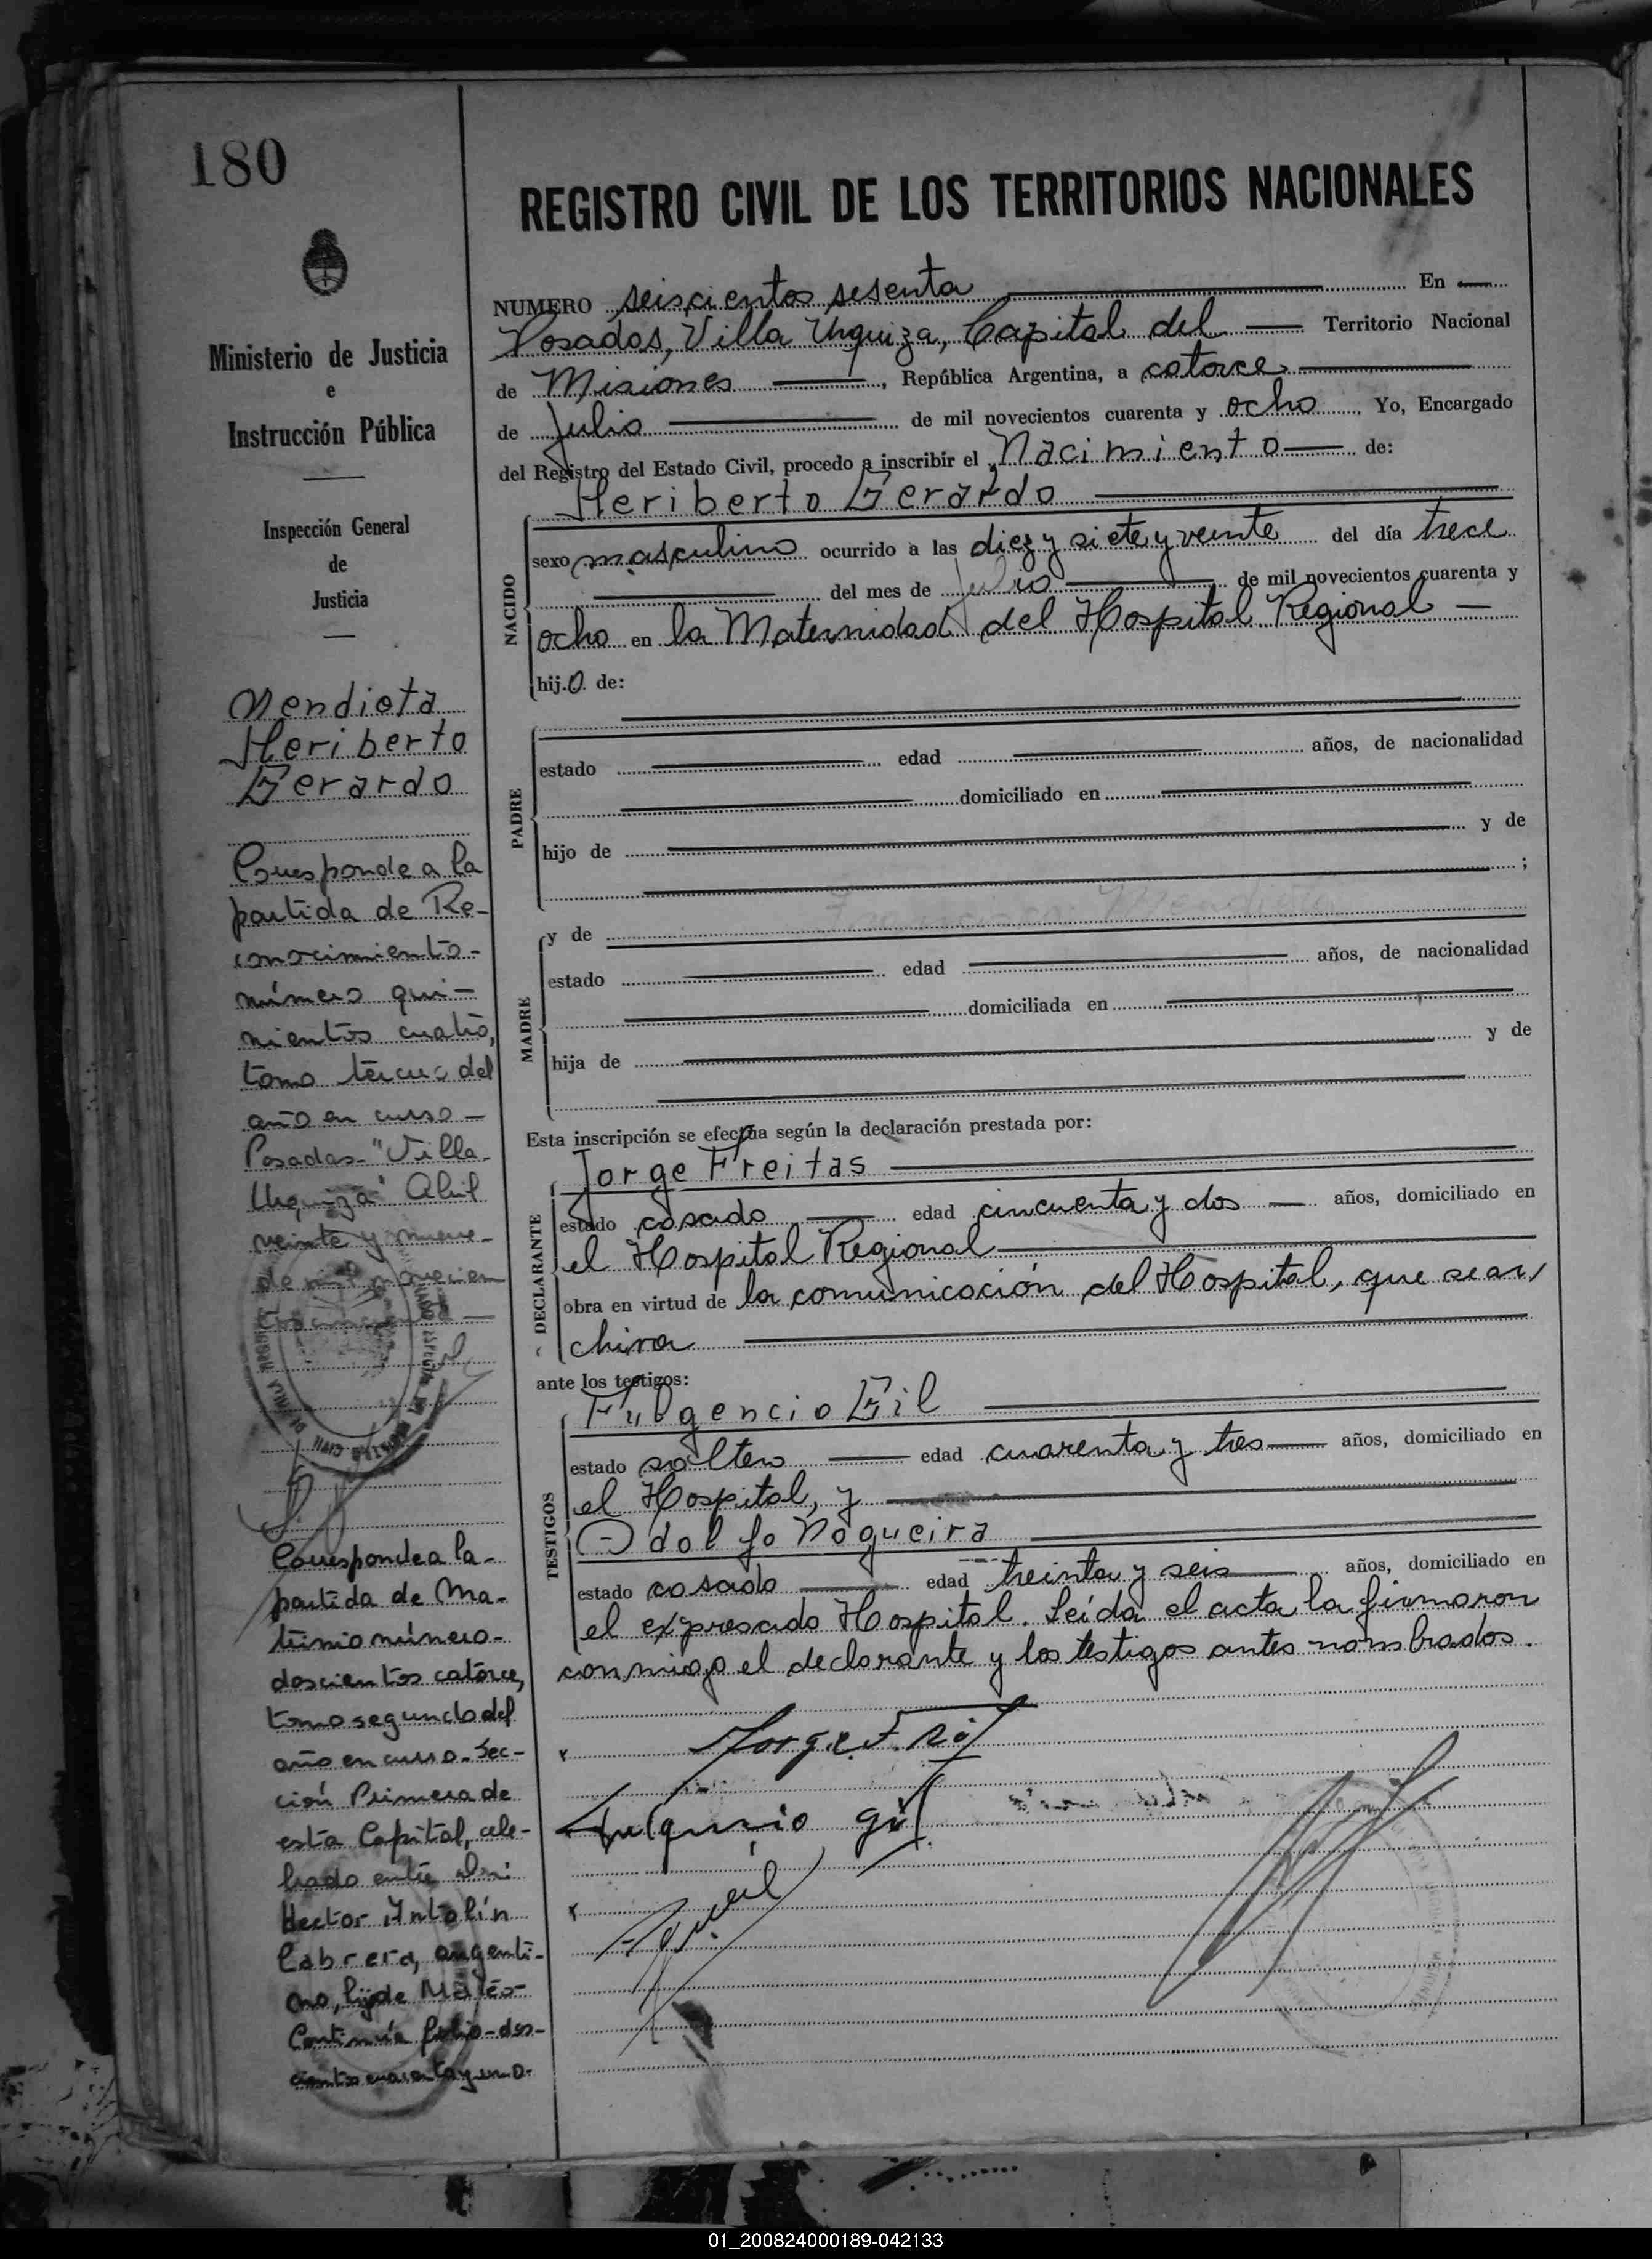 180
Ministerio de Justicia
e
Instrucción Pública
Inspección General
de
Justicia
Mendieta
Heriberto
Gerardo
Corresponde a la
partida de Re-
conocimiento-
número qui-
nientos cuatro,
tomo tercero del
año en curso-
Posadas-"Villa
Urquiza" Abril
veinte y nueve-
de mil novecien
Corresponde a la-
partida de Ma-
trimonio número-
doscientos catorce,
tomo segundo del
año en curso-Sec-
ción Primera de
esta Capital, cele-
brado entre
Hector Antolín
Cabrera, argenti-
no, hijo de Mateo-
Continúa folio-dos-
cientos cuarenta y uno-
REGISTRO CIVIL DE LOS TERRITORIOS NACIONALES
NUMERO seiscientos sesenta En
Posadas, Villa Urquiza, Capital del Territorio Nacional
de Misiones, República Argentina, a catorce
de Julio de mil novecientos cuarenta y ocho, Yo, Encargado
del Registro del Estado Civil, procedo a inscribir el Nacimiento de:
Heriberto Gerardo
NACIDO
sexo masculino ocurrido a las diez y siete y veinte del día trece
del mes de Julio de mil novecientos cuarenta y
ocho en la Maternidad del Hospital Regional
hijo de:
PADRE
estado edad años, de nacionalidad
domiciliado en
hijo de y de
;
MADRE
y de
estado edad años, de nacionalidad
domiciliada en
hija de y de
Esta inscripción se efectúa según la declaración prestada por:
DECLARANTE
Jorge Freitas
estado casado edad cincuenta y dos años, domiciliado en
el Hospital Regional
obra en virtud de la comunicación del Hospital, que se ar/
chiva
ante los testigos:
TESTIGOS
Fulgencio Gil
estado soltero edad cuarenta y tres años, domiciliado en
el Hospital, y
Odolfo Nogueira
estado casado edad treinta y seis años, domiciliado en
el expresado Hospital. Leída el acta la firmaron
conmigo el declarante y los testigos antes nombrados.
Fulgencio gil
01_200824000189-042133